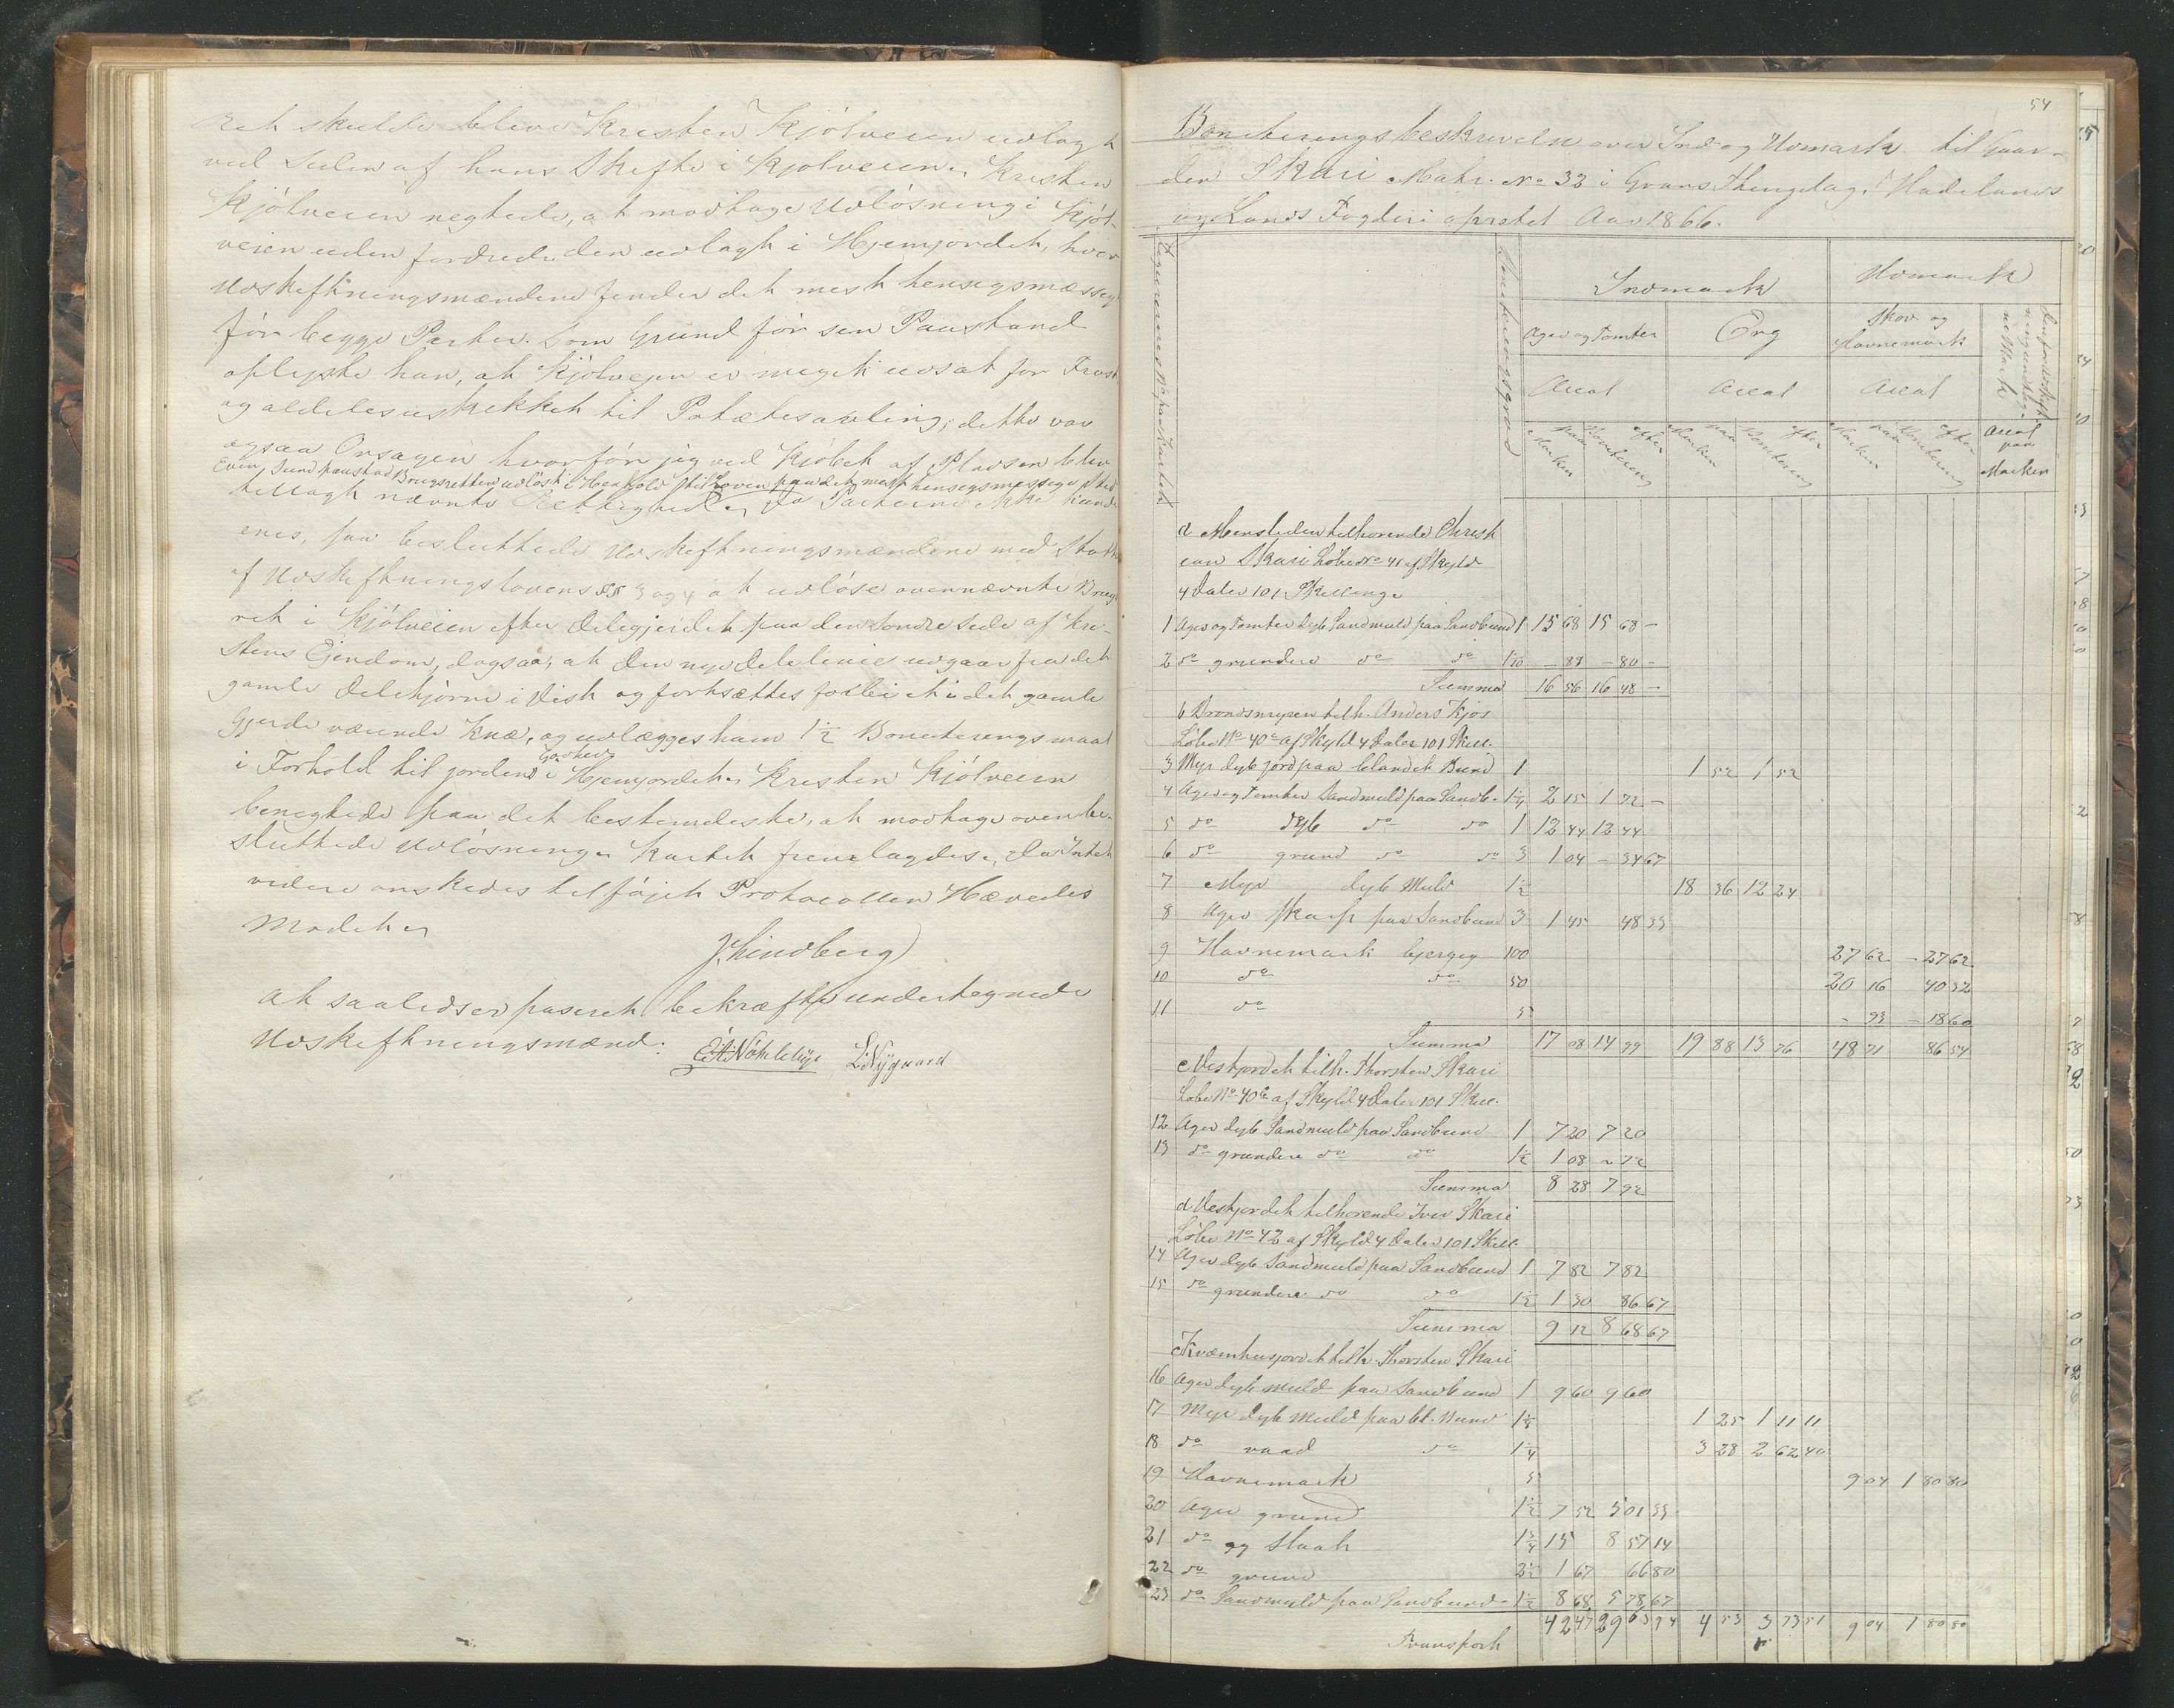 Ret skulde blive Kristen Kjølveien udlagt
ved Siden af hans Skifte i Kjølveien. Kristen
Kjølveien negtede, at modtage Udløsning i Kjøl-
veien uden fordrede den udlagt i Hjemjordet, hvor
Udskiftningsmændene finder det mest hensigsmæssig
før begge Parter. Som Grund før sin Paastand
oplyste han, at Kjølveien er meget udsat for Frost
og aldeles uskikket til Potætesavling; dette var
ogsaa Orsagen hvorfør jeg ved Kjøbet af Pladsen blev
Even Lund paastod Brugsretten udløst i Henhold til Loven paa det mest hensigsmessige Sted
tillagt nævnte Rettighed. Da Parterne ikke kunde
enes, saa besluttede Udskiftningsmændene med Støtte
af Udskiftningslovens §§ 3 og 4 at udløse ovennævnte Brugs
ret i Kjølveien efter Delegjerdet paa den Søndre Side af Kri-
stens Ejendom, dogsaa, at den nye Delelinie udgaar fra det
gamle Delehjørne i Vest og fortsættes forbi et i det gamle
Gjerde værende Knæ, og udlægges ham 1½ Boniteringsmaal
i Forhold til jordens Godhed i Hjemjordet. Kristen Kjølveien
benegtede paa det bestemdeste, at modtage ovenbe-
sluttede Udløsning. Kartet fremlagdes. Da Intet
videre ønskedes tilføjet Protocollen Hævedes
Mødet.
J. Lindberg
At saaledes er paseret bekræfte undertegnede
Udskiftningsmænd:
L. Nygaard
54
Boniteringsbeskrivelse over Ind og Udmark til Gaar-
den Skari Matr. No 33 i Grans Thinglag, Hadelands
og Lands Fogderi oprettet Aar 1866.
Figurernes No paa Kartet
Boniteringsgrad
Indmark
Udmark
Ager og Tomter
Eng
Skov og Havnemark
Areal
Areal
Areal
Areal paa Marken
paa Marken
efter Bonitering
paa Marken
efter Bonitering
paa Marken
efter Bonitering
a tilhørende Christ
ian Skari Løbe No 41 af Skyld
4 Daler 101 Skilling.
1 Ager og Tomter dyb Sandmuld paa Sandbund 1 15 68 15 68 -
2 do grundere do do 1 1/10 - 88 - 80 -
Summa 16 56 16 48 -
b Brondsmyren tilh. Anders Kjos
Løbe No 40a af Skyld 4 Daler 101 Skill.
3 Myr dyb jord paa blandet Bund 1 1 52 1 52
4 Ager og Tomter Sandmuld paa Sandb. 1¼ 2 15 1 72 -
5 do dyb do do 1 12 44 12 44
6 do grund do do 3 1 04 - 34 67
7 Myr dyb Muld 1½ 18 36 12 24
8 Ager skarp paa Sandbund 3 1 45 48 33
9 Havnemark bjergig 100 27 62 - 27 62
10 do do 50 20 16 40 32
11 do 5 - 93 - 18 60
Summa 17 08 14 99 19 88 13 76 48 71 86 54
c Vestjordet tilh. Thorsten Skari
Løbe No 40b af Skyld 4 Daler 101 Skill.
12 Ager dyb Sandmuld paa Sandbund 1 7 20 7 20
13 do grundere do do 1½ 1 08 - 72
Summa 8 28 7 92
d Vestjordet tilhørende Iver Skari
Løbe No 42 af Skyld 4 Daler 101 Skill.
14 Ager dyb Sandmuld paa Sandbund 1 7 82 7 82
15 do grundere do do 1½ 1 30 86 67
Summa 9 12 8 68 67
e Kværnhusjordet tilh. Thorsten Skari
16 Ager dyb Muld paa Sandbund 1 9 60 9 60
17 Myr dyb Muld paa bl. Bund 1⅛ 1 25 1 11 11
18 do vaad do 1¼ 3 28 2 62 40
19 Havnemark 5 9 04 1 80 80
20 Ager grund 1½ 7 52 5 01 33
21 do og Slaat 1¾ 15 8 57 14
22 do grund 2½ 1 67 66 80
23 do Sandmyld paa Sandbund 1½ 8 68 5 78 67
Transport 42 47 29 63 94 4 53 3 73 51 9 04 1 80 80